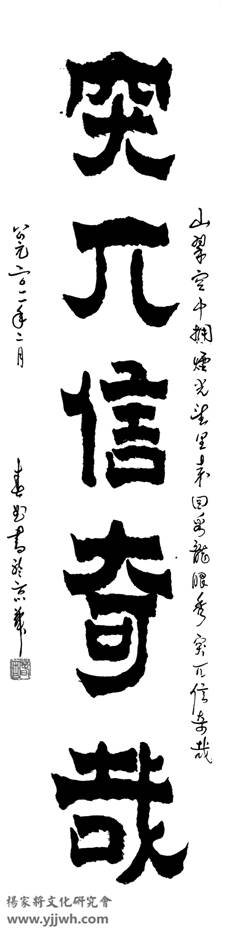 山翠空中煙光里來回龍眼秀突兀信奇哉
突兀信奇哉
公元二〇一一年二月
春書於京華
楊家將文化研究會
www.yjjwh.com